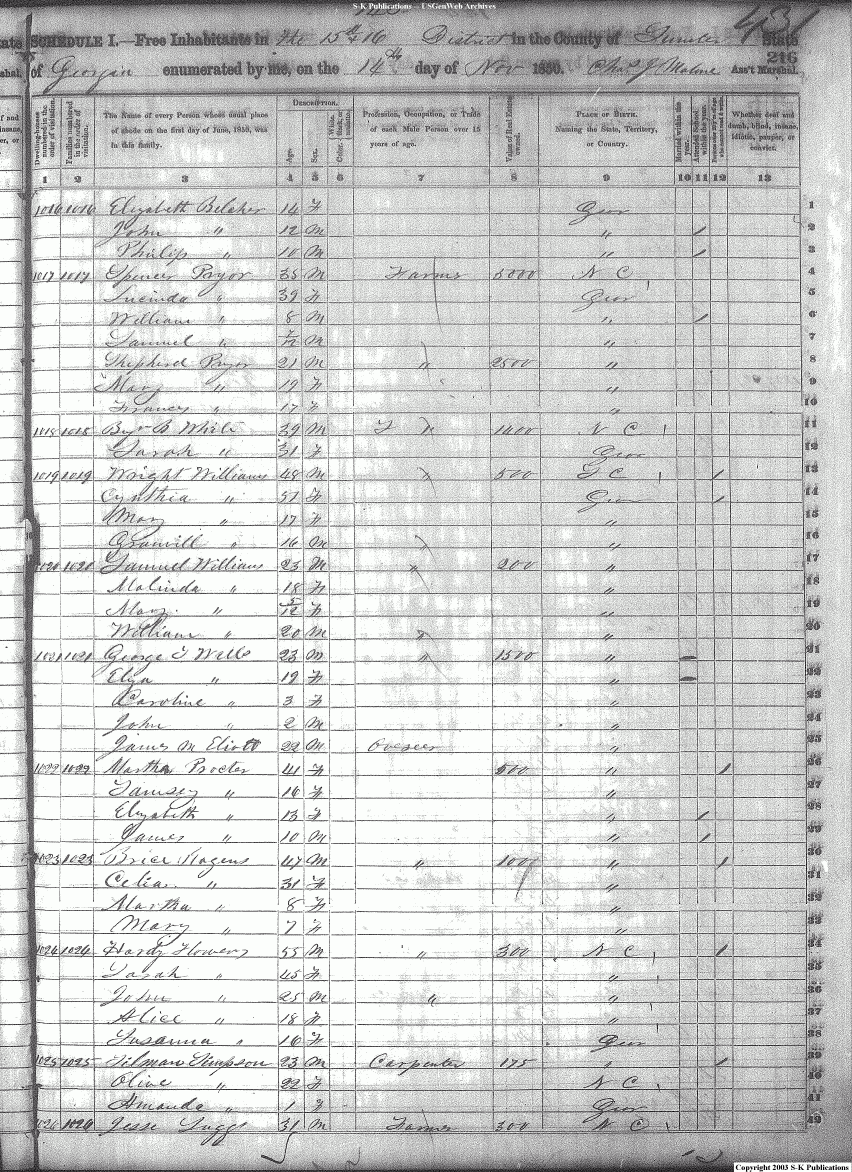 S-K Publications - USGenWeb Archives
431
SCHEDULE I.—Free Inhabitants in the 15th & 16 District in the County of Sumter State
of Georgia enumerated by me, on the 14th day of Nov 1850. Chas J Malone Ass't Marshal.
216
Dwelling-houses numbered in the order of visitation. Families numbered in the order of visitation. The Name of every Person whose usual place of abode on the first day of June, 1850, was in this family. Description. Age. Sex. White, black, or mulatto. Profession, Occupation, or Trade of each Male Person over 15 years of age. Value of Real Estate owned. Place of Birth. Naming the State, Territory, or Country. Married within the year. Attended School within the year. Persons over 20 y'rs of age who cannot read & write. Whether deaf and dumb, blind, insane, idiotic, pauper, or convict.
1 2 3 4 5 6 7 8 9 10 11 12 13
1016 1016 Elizabeth Belcher 14 F Geor 1
John " 12 M " / 2
Philip " 10 M " / 3
1017 1017 Spencer Pryor 35 M Farmer 5000 N C 4
Lucinda " 39 F Geor 5
William " 8 M " / 6
Samuel " 7/12 M " 7
Shepherd Pryor 21 M " 2500 " 8
Mary " 19 F " 9
Frances " 17 F " 10
1018 1018 B B White 39 M 1400 N C 11
Sarah " 31 F Geor 12
1019 1019 Wright Williams 48 M " 500 S C / 13
Cynthia " 51 F Geor / 14
Mary " 17 F " 15
Granvill " 16 M " " 16
1020 1020 Samuel Williams 23 M " 200 " 17
Malinda " 18 F " 18
Mary " 5/12 F " 19
William " 20 M " " 20
1021 1021 George T Wells 23 M " 1500 " 21
Elza " 19 F " 22
Caroline " 3 F " 23
John " 2 M " 24
James M Eliott 22 M Overseer " 25
1022 1022 Martha Procter 41 F 500 " / 26
Tamsey " 16 F " 27
Elizabeth " 13 F " / 28
James " 10 M " / 29
1023 1023 Brice Rogers 47 M " 100 " / 30
Celia " 31 F " 31
Martha " 8 F " 32
Mary " 7 F " 33
1024 1024 Hardy Flowers 55 M " 300 N C / 34
Sarah " 45 F " 35
John " 25 M " " 36
Alice " 18 F " 37
Susanna " 16 F Geor 38
1025 1025 Tilman Simpson 23 M Carpenter 175 " / 39
Olive " 22 F N C 40
Amanda " 1 F Geor 41
1026 1026 Jesse Suggs 31 M Farmer 300 N C 42
Copyright 2003 S-K Publications